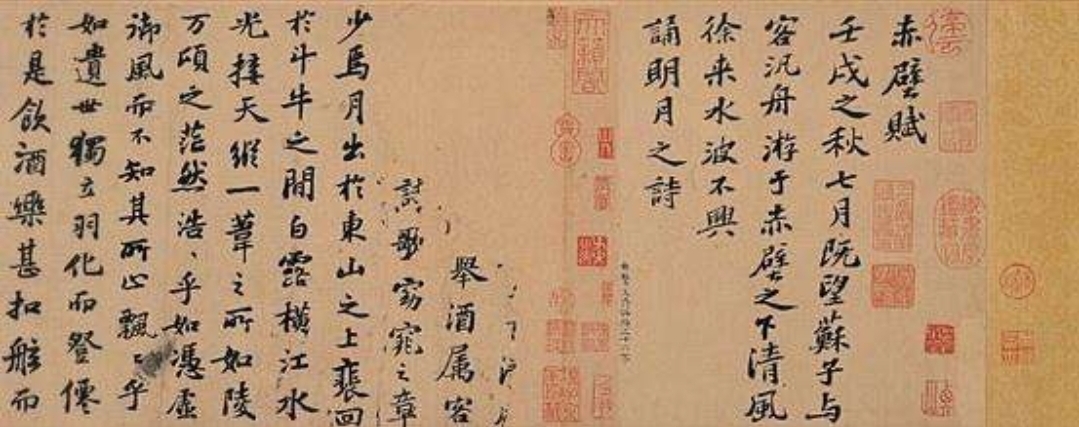 赤壁賦
壬戌之秋七月既望蘇子与
客汎舟游于赤壁之下清風
徐来水波不興
誦明月之詩
舉酒属客
歌窈窕之章
少焉月出於東山之上裴回
於斗牛之間白露橫江水
光接天縱一葦之所如陵
万頃之茫然浩〻乎如憑虛
御風而不知其所止飄〻乎
如遺世獨立羽化而登僊
於是飲酒樂甚扣舷而